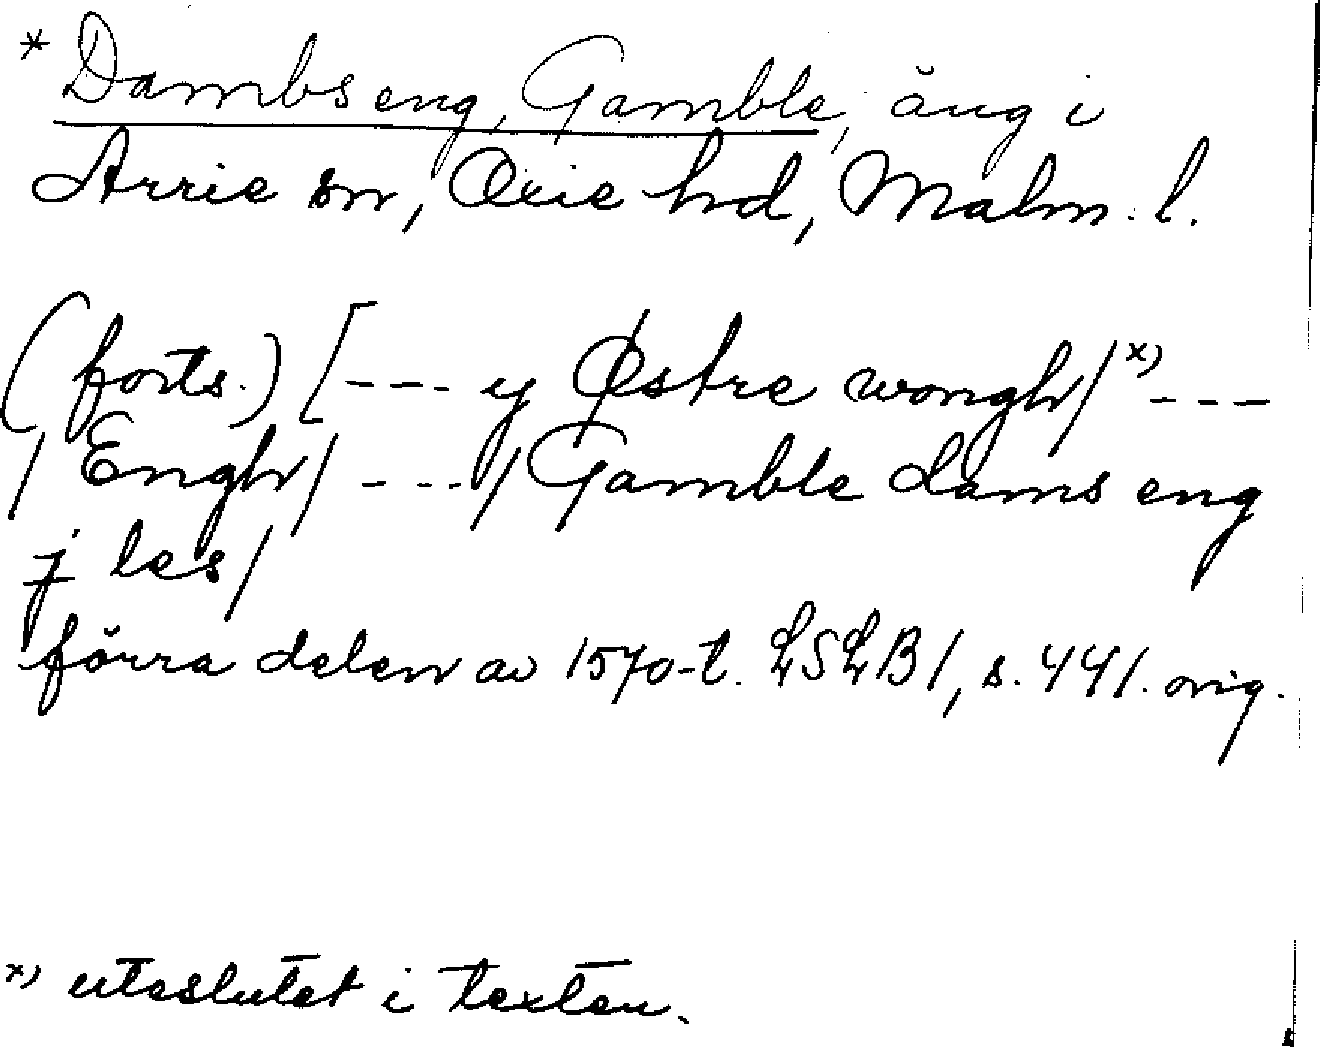 * Dambs eng, Gamble, äng i
Arrie sn, Oxie hd, Malm. l.
(forts.) [--- y Østre wongh/ x) ---
/ Engh/ ---/ Gamble dams eng
j les/
förra delen av 1570-t. LSLB1, s. 441. orig.
x) uteslutet i texten.